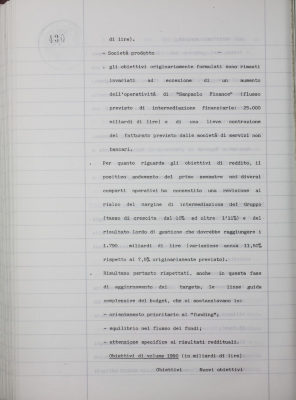 430
di lire).
- Società prodotto -
. gli obiettivi originariamente formulati sono rimasti
invariati ad eccezione di un aumento
dell'operatività di "Sanpaolo Finance" (flusso
previsto di intermediazione finanziaria: 25.000
miliardi di lire) e di una lieve contrazione
del fatturato previsto dalle società di servizi non
bancari.
Per quanto riguarda gli obiettivi di reddito, il
positivo andamento del primo semestre nei diversi
comparti operativi ha consentito una revisione al
rialzo del margine di intermediazione del Gruppo
(tasso di crescita dal 10% ad oltre l'11%) e del
risultato lordo di gestione che dovrebbe raggiungere i
1.700 miliardi di lire (variazione annua 11,50%
rispetto al 7,5% originariamente previsto).
Risultano pertanto rispettati, anche in questa fase
di aggiornamento dei targets, le linee guida
complessive del budget, che si sostanziavano in:
- orientamento prioritario al "funding";
- equilibrio nel flusso dei fondi;
- attenzione specifica ai risultati reddituali.
Obiettivi di volume 1990 (in miliardi di lire)
Obiettivi Nuovi obiettivi